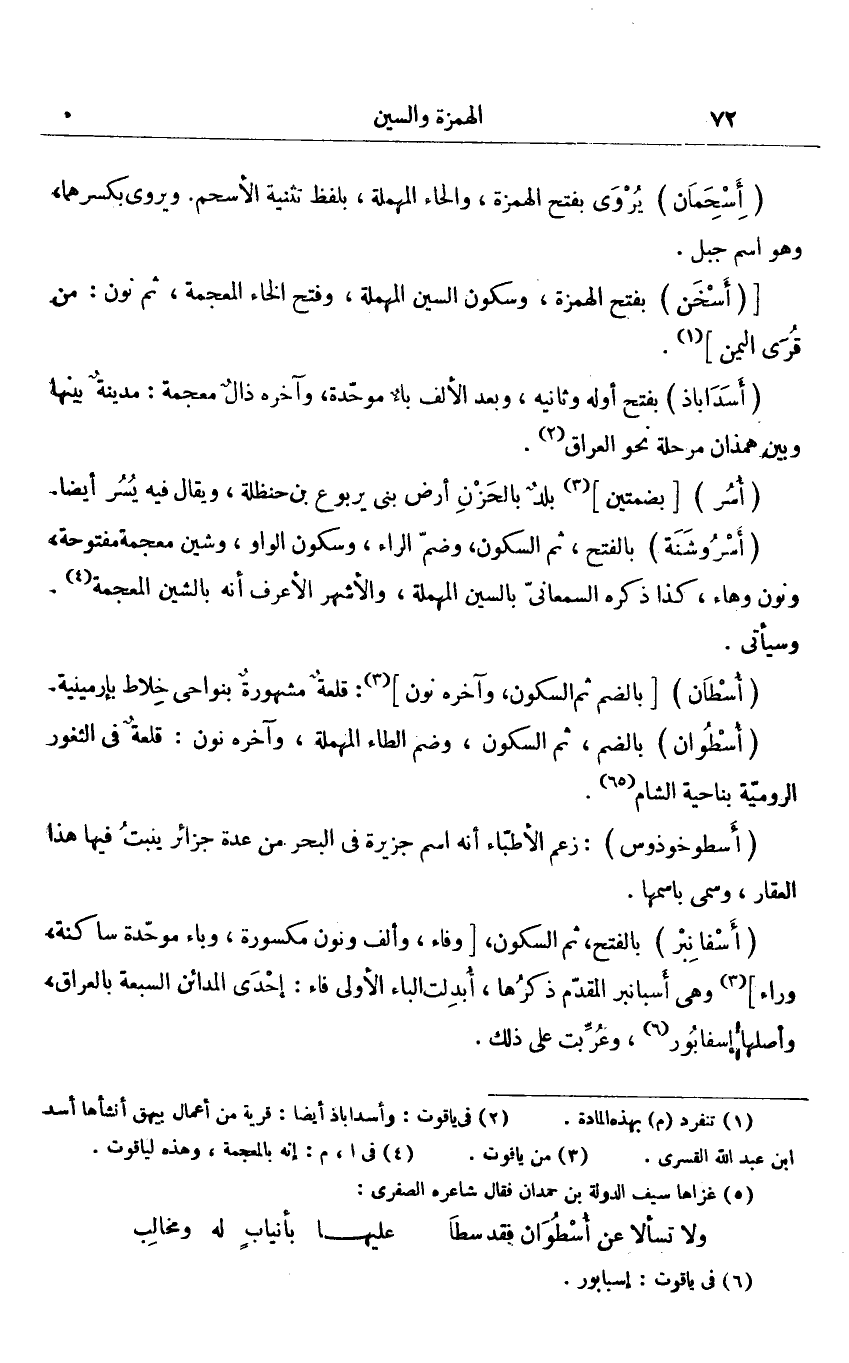 ٧٢ الهمزة والسين
( أَِسْحَِمَان ) يُرْوَى بفتح الهمزة ، والحاء المهملة ، بلفظ تثنية الأسحم. ويروى بكسرهما،
وهو اسم جبل .
[ ( أَسْخَن ) بفتح الهمزة ، وسكون السين المهملة ، وفتح الخاء المعجمة ، ثم نون : من
قُرَى اليمن ](١) .
( أَسَدَاباذ ) بفتح أوله وثانيه ، وبعد الألف باء موحّدة، وآخره ذالٌ معجمة : مدينةٌ بينها
وبين همذان مرحلة نحو العراق(٢) .
( أُسُر ) [ بضمتين ](٣) بلدٌ بالحَزْنِ أرض بنى يربوع بن حنظلة ، ويقال فيه يُسُر أيضا.
( أَسْرُوشَنَة ) بالفتح ، ثم السكون، وضمّ الراء ، وسكون الواو ، وشين معجمة مفتوحة،
ونون وهاء ، كذا ذكره السمعانىّ بالسين المهملة ، والأشهر الأعرف أنه بالشين المعجمة(٤) .
وسيأتى .
( أُسْطَان ) [ بالضم ثم السكون، وآخره نون ](٣): قلعةٌ مشهورةٌ بنواحى خِلاط بإرمينية.
( أُسْطُوان ) بالضم ، ثم السكون ، وضم الطاء المهملة ، وآخره نون : قلعةٌ فى الثغور
الروميّة بناحية الشام(٦٥) .
( أَسطوخوذوس ) : زعم الأطبّاء أنه اسم جزيرة فى البحر من عدة جزائر ينبتُ فيها هذا
العقار ، وسمى باسمها .
( أَسْفانِبْر ) بالفتح، ثم السكون، [ وفاء ، وألف ونون مكسورة ، وباء موحّدة ساكنة،
وراء ](٣) وهى أَسبانبر المقدّم ذكرُها ، أُبدِلت الباء الأولى فاء : إحْدَى المدائن السبعة بالعراق،
وأصلها إسفابُور(٦) ، وعُرِّبت على ذلك .
(١) تنفرد (م) بهذه المادة . (٢) فى ياقوت : وأسداباذ أيضا : قرية من أعمال بيهق أنشأها أسد
ابن عبد الله القسرى . (٣) من ياقوت . (٤) فى ا ، م : إنه بالمعجمة ، وهذه لياقوت .
(٥) غزاها سيف الدولة بن حمدان فقال شاعره الصفرى :
ولا تسألا عن أُسْطُوَان فقد سطَا عليهـــا بأنيابٍ له ومخالِب
(٦) فى ياقوت : إسبابور .